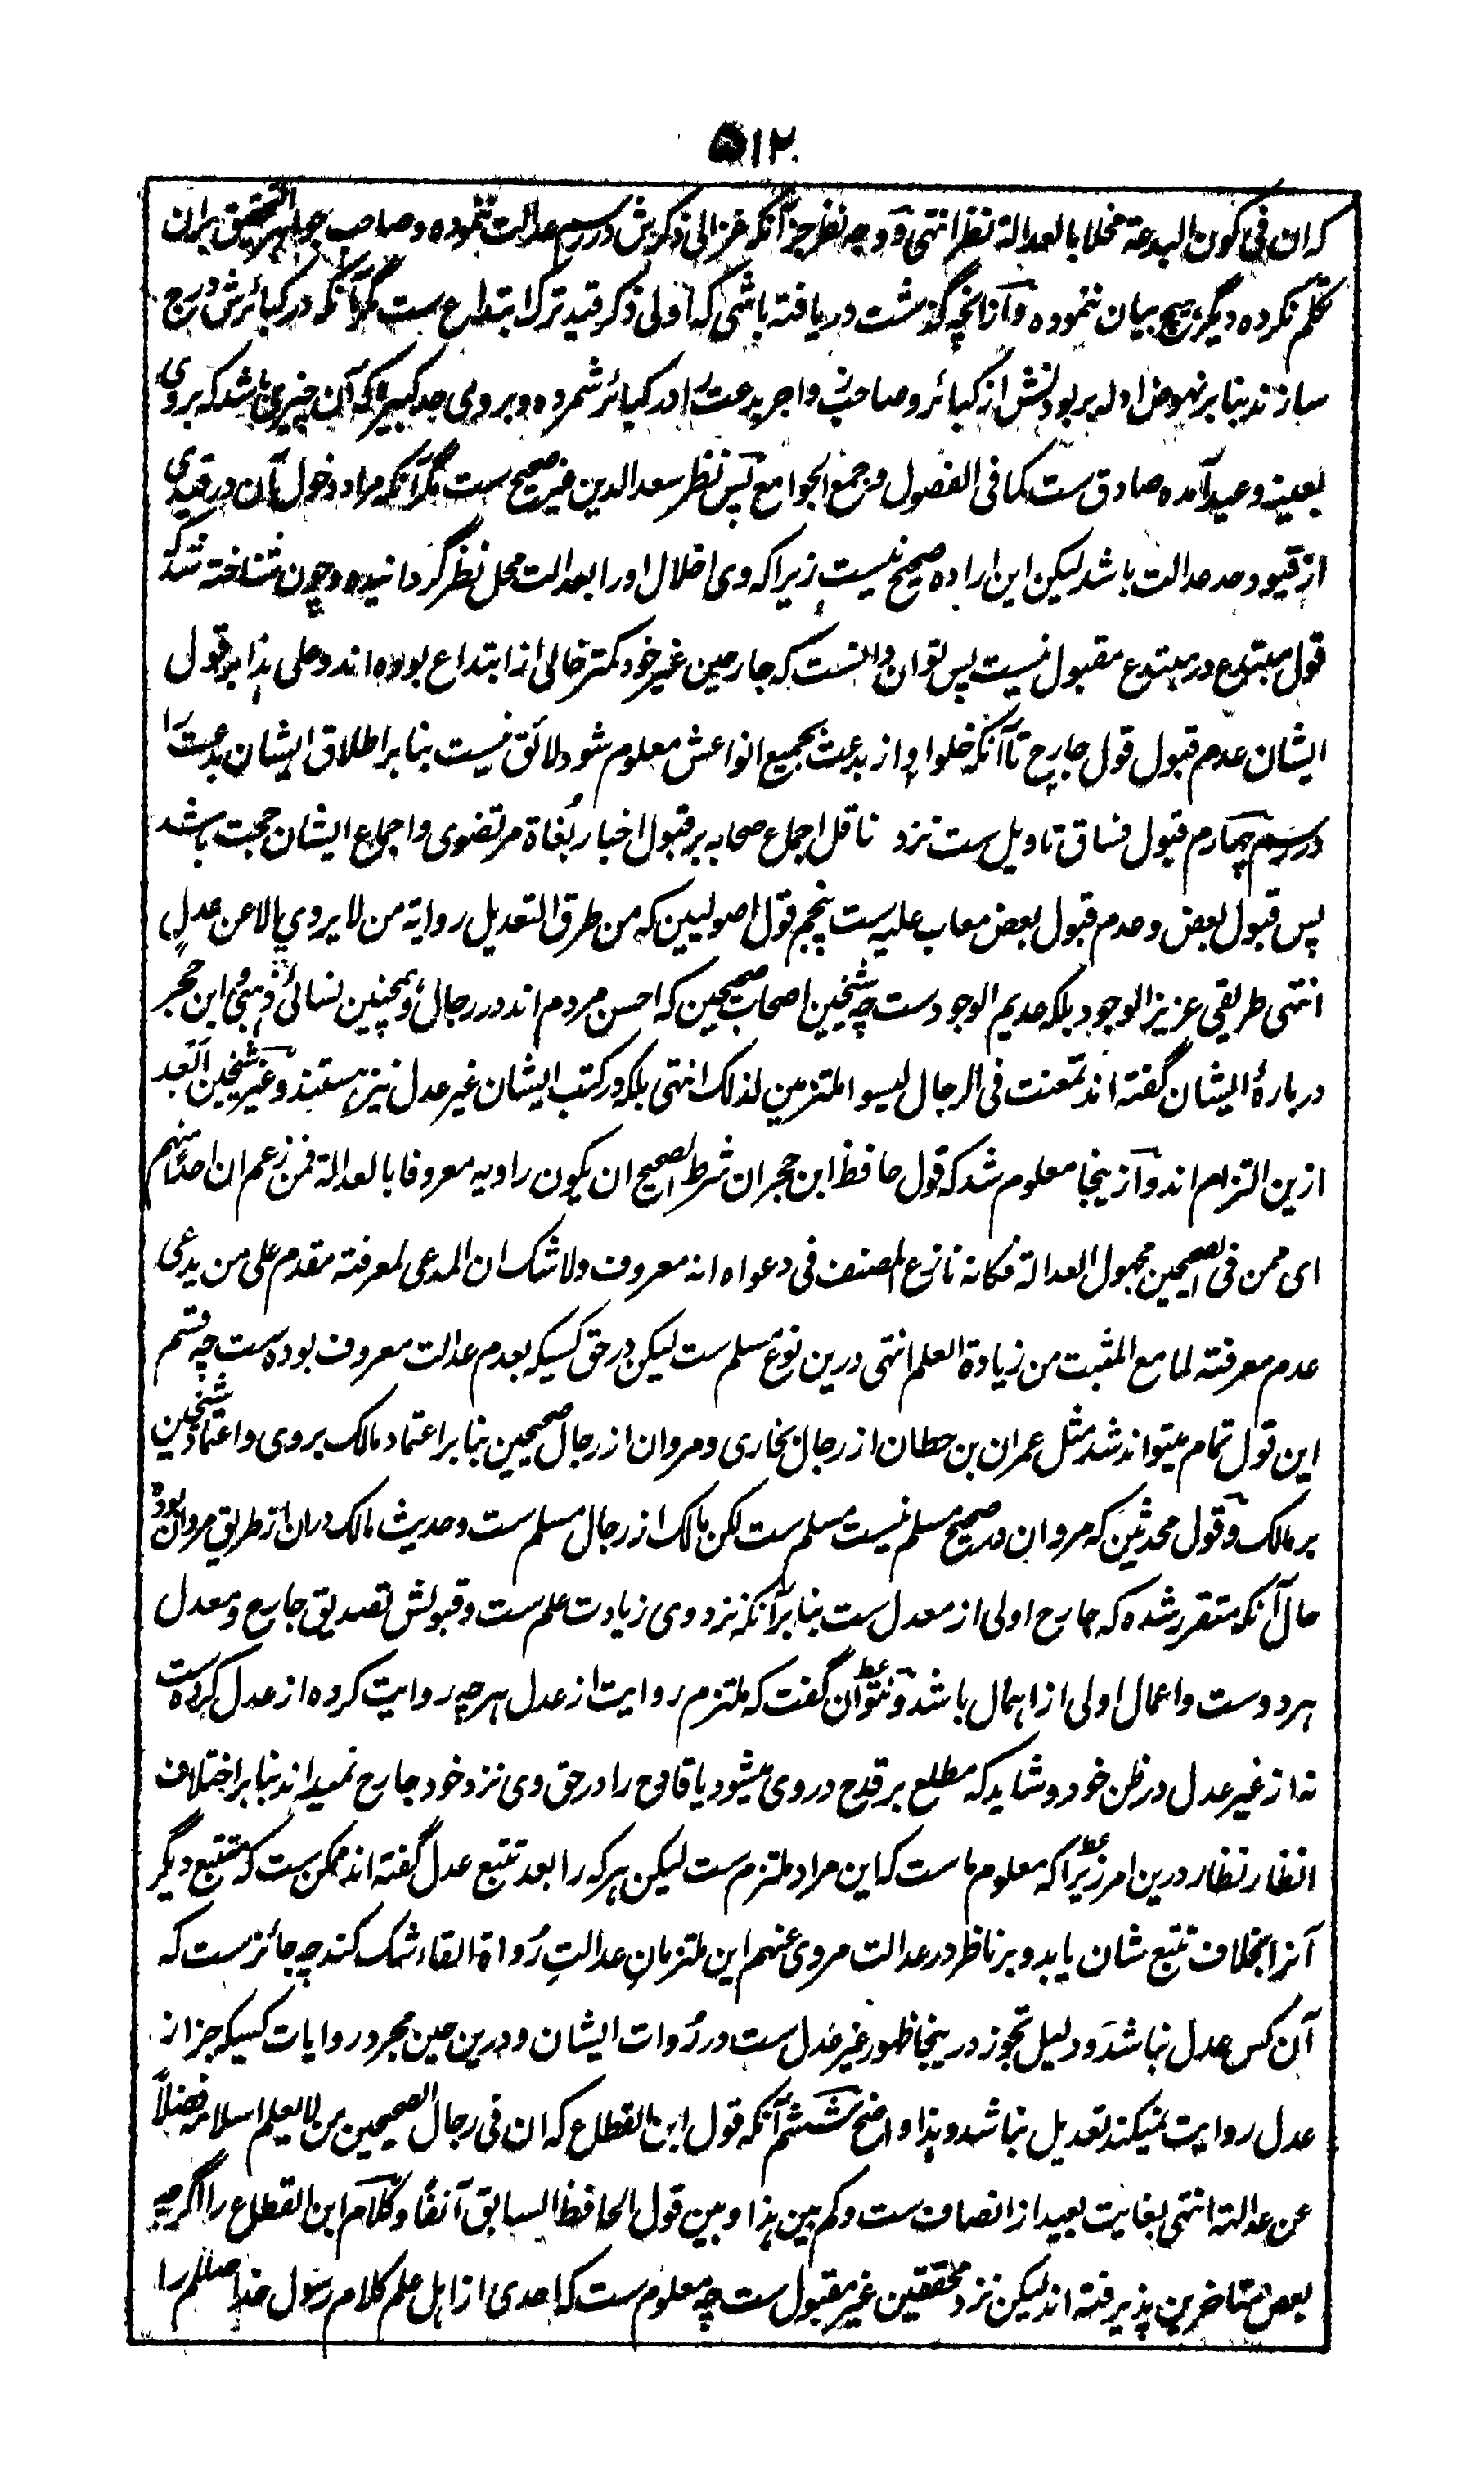 ۵۱۲
که ان فی کون البدعة مخلا بالعدالة نظرا انتهی و وجه نظر جز آنکه غزالی ذکرش در رسم عدالت ننموده و صاحب جواهر التحقیق بران
تکلم نکرده دیگر هیچ بیان ننموده و از انچه گذشت دریافته باشی که اولی ذکر قید ترک ابتداع ست مگر آنکه در کبائرش درج
سازند بنا بر نهوض ادله بر بودنش از کبائر و صاحب واجر بدعت را در کبائر شمرده و بروی حد کبیره که آن چیزی باشد که بروی
بعینه وعید آمده صادق ست کما فی الفصول و جمع الجوامع پس نظر سعد الدین غیر صحیح ست مگر آنکه مراد دخول آن در قیدی
از قیود حد عدالت باشد لیکن این اراده صحیح نیست زیرا که وی اخلال او را بعدالت محل نظر گردانیده و چون شناخته شد که
قول مبتدع در مبتدع مقبول نیست پس توان دانست که جارحین غیر خود کمتر خالی از ابتداع بوده اند و علی هذا بر قول
ایشان عدم قبول قول جارح تا آنکه خلو او از بدعت بجمیع انواعش معلوم شود لائق نیست بنا بر اطلاق ایشان بدعت را
در رسم چهارم قبول فساق تاویل ست نزد ناقل اجماع صحابه بر قبول اخبار بُغاة مرتضوی و اجماع ایشان حجت باشد
پس قبول بعض و عدم قبول بعض معاب علیه ست پنجم قول اصولیین که من طرق التعدیل روایة من لا یروی الا عن عدلٍ
انتهی طریقی عزیز الوجود بلکه عدیم الوجود ست چه شیخین اصحاب صحیحین که احسن مردم اند در رجال و همچنین نسائی و ذهبی و ابن حجر
دربارهٔ ایشان گفته اند تعنت فی الرجال لیسوا ملتزمین لذلک انتهی بلکه در کتب ایشان غیر عدل نیز هستند و غیر شیخین ابعد
ازین التزام اند و ازینجا معلوم شد که قول حافظ ابن حجر ان شرط الصحیح ان یکون راویه معروفا بالعدالة فمن زعم ان احدا منهم
ای ممن فی الصحیحین مجهول العدالة فکانه نازع المصنف فی دعواه انه معروف ولا شک ان المدعی لمعرفته مقدم علی من یدعی
عدم معرفته لما مع المثبت من زیادة العلم انتهی درین نوع مسلم ست لیکن در حق کسیکه بعدم عدالت معروف بوده ست چه قسم
این قول تمام میتواند شد مثل عمران بن حطان از رجال بخاری و مروان از رجال صحیحین بنا بر اعتماد مالک بروی و اعتماد شیخین
بر مالک و قول محدثین که مروان در صحیح مسلم نیست مسلم ست لکن مالک از رجال مسلم ست و حدیث مالک دران از طریق مروان بوده
حال آنکه متقرر شده که جارح اولی از معدل ست بنا بر آنکه نزد وی زیادت علم ست و قبولش تصدیق جارح و معدل
هر دوست و اعمال اولی از اهمال باشد و نتوان گفت که ملتزم روایت از عدل هرچه روایت کرده از عدل کرده ست
نه از غیر عدل در ظن خود و شاید که مطلع بر قدح در وی میشود یا قادح را در حق وی نزد خود جارح نمیداند بنا بر اختلاف
انظار نظار درین امر زیرا که معلوم ما ست که این مراد ملتزم ست لیکن هر که را بعد تتبع عدل گفته اند ممکن ست که متتبع دیگر
آنرا بخلاف تتبع شان یابد و بر ناظر در عدالت مروی عنهم این ملتزمانِ عدالتِ رُواة القاء شک کند چه جائز ست که
آن کس عدل نباشد و دلیل تجوز درینجا ظهور غیر عدل ست در رُوات ایشان و درین حین مجرد روایات کسیکه جز از
عدل روایت نمیکند تعدیل نباشد و هذا واضح ششم آنکه قول ابن القطاع که ان فی رجال الصحیحین من لا یعلم اسلامه فضلاً
عن عدالته انتهی بغایت بعید از انصاف ست و کم بین هذا و بین قول الحافظ السابق آنفا و کلام ابن القطاع را اگرچه
بعض متاخرین پذیرفته اند لیکن نزد محققین غیر مقبول ست چه معلوم ست که احدی از اهل علم کلام رسول خدا صلعم را